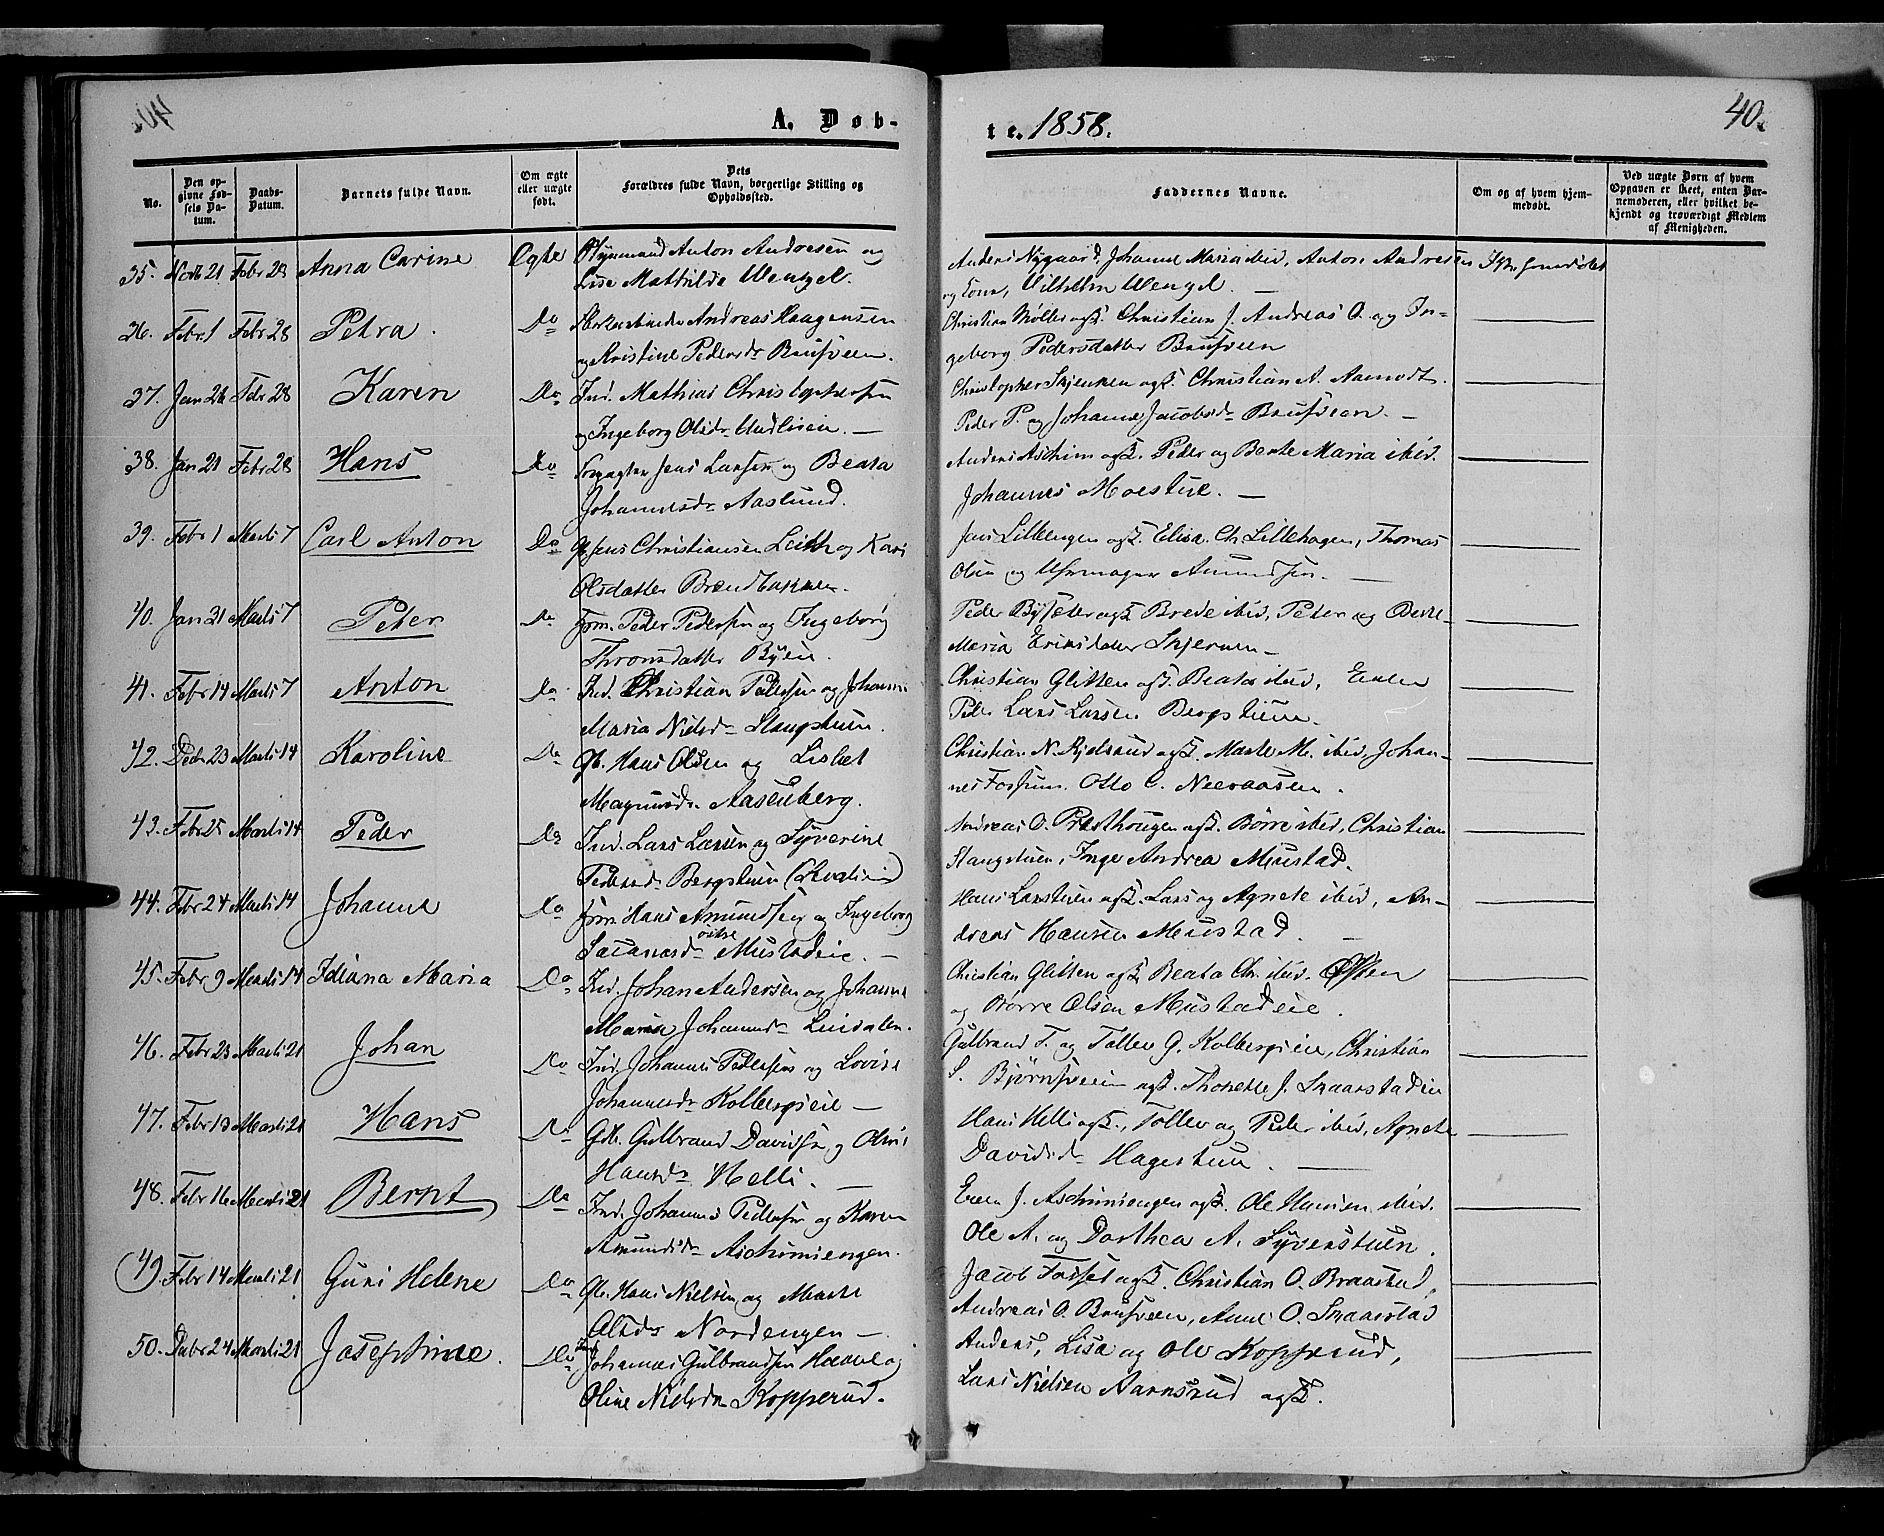 A. Døb-
te. 1858.
40.
No.
Den op-
givne Fød-
sels Da-
tum.
Daabs-
Datum.
Barnets fulde Navn.
Om ægte
eller uægte
født.
Dets
Forældres fulde Navn, borgerlige Stilling og
Opholdssted.
Faddernes Navne.
Om og af hvem hjem-
medøbt.
Ved uægte Børn af hvem
Opgaven er skeet, enten Bar-
nemoderen, eller hvilket be-
kjendt og troværdigt Medlem
af Menigheden.
35. Novb 21 Febr 28 Anna Carine Ægte Anton Andresen og
Lise Mathilde Wengel.
Anders Nygaard, Johanne Maria ibid, Anton Andresen
og Vilhelm Wengel. —
36. Febr. 1 Febr 28 Petra. Do Andreas Haagensen
og Kristine Pedersdr Brufveen.
Christian Møller og Christian J. Andreas O. og In-
geborg Pedersdatter Brufveen
37. Jan 26 Febr 28 Karen Do Ind. Mathias Christophersen
og Ingeborg Olsdr —
Christopher Skjenken og Christian A. Aamodt.
Peder P. og Johanne Jacobsdr Brufveen. —
38. Jan 21 Febr 28 Hans Do Forpagter Jens Larsen og Beata
Johannesdr Aaslund.
Anders Aschim og Peder og Beate Maria ibid.
Johannes Moestue. —
39. Febr 1 Marts 7 Carl Anton Do Jens Christiansen Leith og Kari
Olsdatter Brændbakken.
Jens Lilleengen og Elisa. Ch. Lillehagen, Thomas
Olsen og Uhrmager Amundsen. —
40. Jan 31 Marts 7 Peter Do Peder Pedersen og Ingeborg
Thronsdatter Byeie.
Peder og Brede ibid, Peter og
Maria Eriksdatter Skjerven —
41. Febr 14 Marts 7 Anton Do Ind. Christian Pedersen og Johanne
Maria Nielsdr Slangstuen.
Christian Glitten og Beata ibid, Even
Peder Lars Larsen Bergstuen.
42. Decbr 23 Marts 14 Karoline Do Gb. Hans Olsen og Lisbet
Magnusdr Aasenberg.
Christian N. Kjelsrud og Marte M. ibid, Johan-
nes Fossum. Otto C. Neeraasen.
43. Febr 25 Marts 14 Peder Do Ind. Lars Larsen og Syverine
Pedersdr Bergstuen
Andreas O. Præsthougen og Børre ibid, Christian
Slangstuen, Inge Andrea Mustad.
44. Febr 24 Marts 14 Johanne Do Hans Amundsen og Ingeborg
østre Mustadeie. —
Hans Larstuen og Lars og Agnete ibid, An-
dreas Hansen Mustad. —
45. Febr 9 Marts 14 Idiana Maria Do Ind. Johan Andersen og Johanne
Maria Johannesdr Lindalen.
Christian Glitten og Beata Ch. ibid. Østen
og Børre Olsen Mustadeie.
46. Febr 23 Marts 21 Johan Do Ind. Johannes Pedersen og Lovise
Johannesdr Kolbergseie —
Gulbrand T. og Tollev G. Kolbergseie, Christian
S. Bjørnsveen og Thonette J. Snaarstadeie
47. Febr 13 Marts 21 Hans Do Gb. Gulbrand Davidsen og Oline
Hansdr Helli. —
Hans Helli og Tollev og Peder ibid, Agnete
Davidsdr Hagestuen. —
48. Febr 16 Marts 21 Bernt Do Ind. Johannes Pedersen og Karen
Amundsdr Aschimsengen.
Even J. Aschimsengen og Ole Hansen ibid.
Ole A. og Dorthea A. Syverstuen.
49) Febr 14 Marts 21 Guri Helene Do Gb. Hans Nielsen og Marte
Olsdr Nordengen —
Jacob Fosset og Christian O. Braastad,
Andreas O. Brufveen, Anne O. Snaarstad
50. Decbr 24 Marts 21 Josephine. Do Johannes Gulbrandsen og
Oline Nielsdr Kopperud.
Anders, Lisa og Ole Kopperud,
Lars Nielsen Aarnsrud og